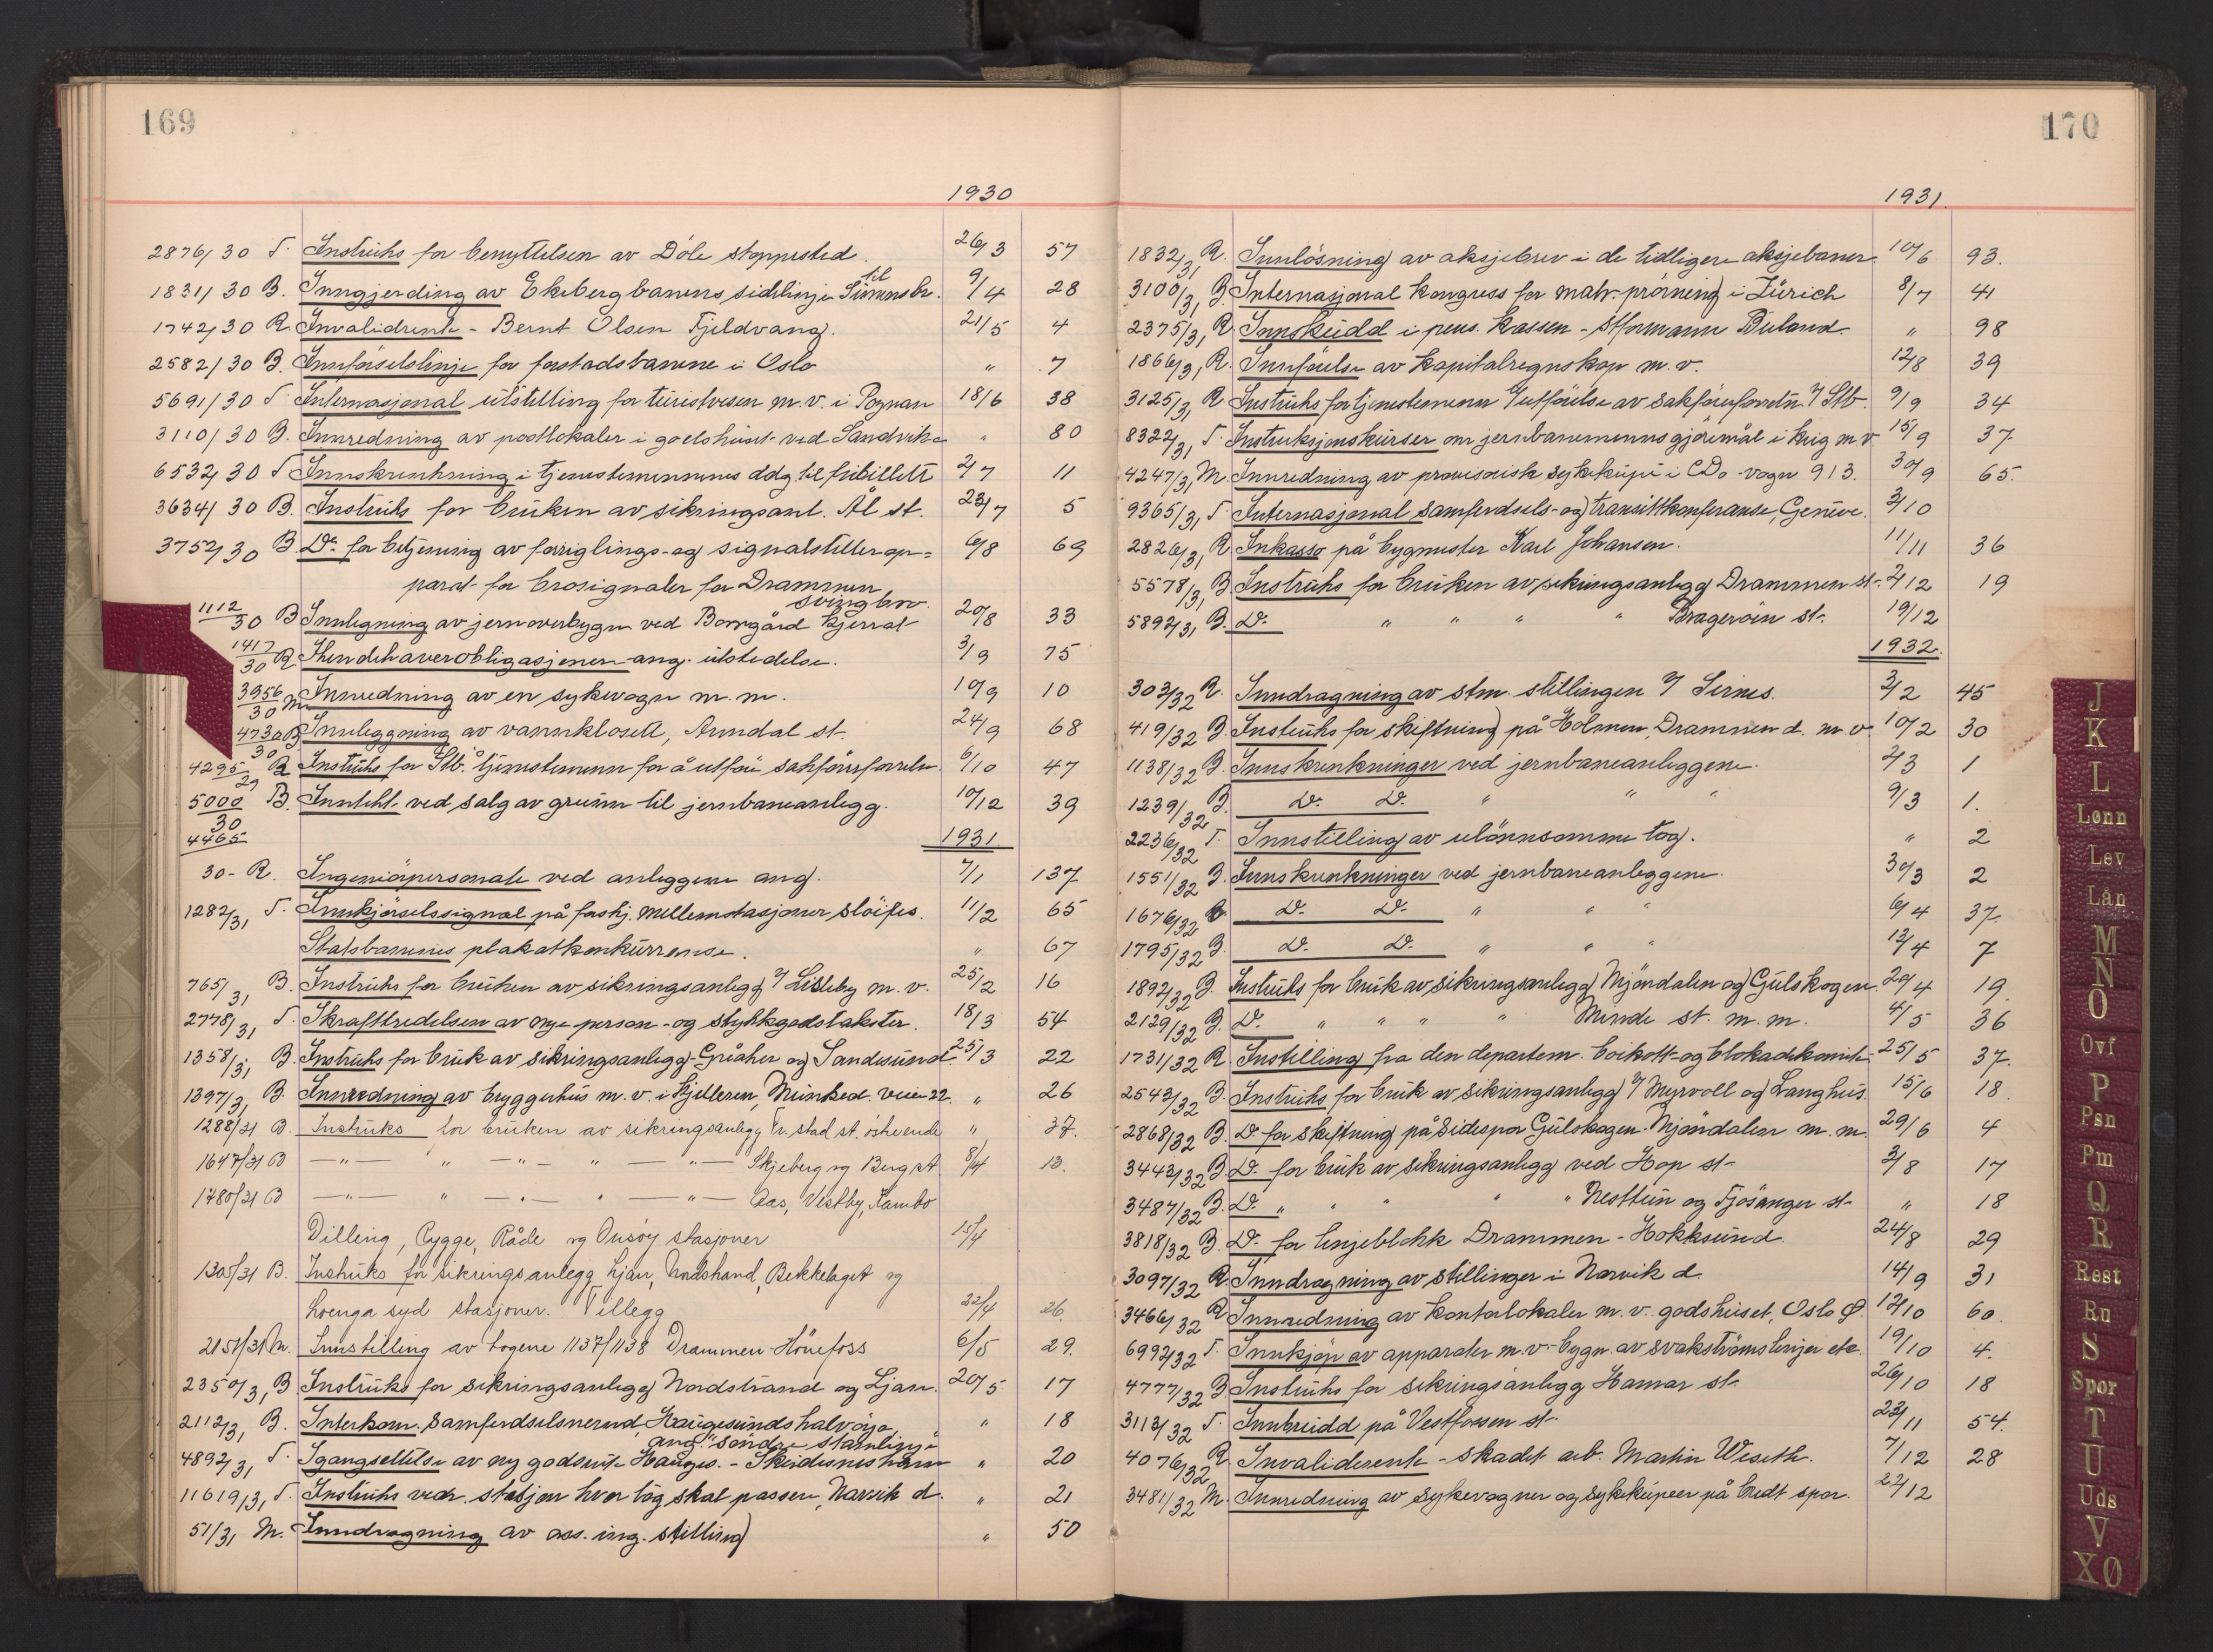 169
1930
2876/30 T. Instruks for benyttelsen av Döle stoppested. 26/3 57
1831/30 B. Inngjerding av Ekebergbanens sidelinje til Simensbr. 9/4 28
1742/30 R. Invaliderente - Bernt Olsen Fjeldvang. 21/5 4
2582/30 B. Innförselslinje for forstadsbanene i Oslo " 7
5691/30 T Internasjonal utstilling for turistvesen m.v. i Poznan 18/6 38
3110/30 B. Innredning av postlokaler i godshuset ved Sandvika " 80
6532/30 T Innskrenkning i tjenestemennenes adg. til fribillett 2/7 11
3634/30 B. Instruks for bruken av sikringsanl. Ål st. 23/7 5
3752/30 B Do. for betjening av forriglings- og signalstillerap= 6/8 69
parat for brosignaler for Drammen
svingbro.
1112/30 B Innlegning av jernoverbygn. ved Borregård kjerrat 20/8 33
1417/30 R. Ihendehaverobligasjoner ang. utstedelse. 3/9 75
3956/30 M Innredning av en sykevogn m.m. 10/9 10
4730/30 B Innleggning av vannklosett, Arendal st. 24/9 68
4295/29 R Instruks for Stb. tjenestemenn for å utföre sakförerforretn. 6/10 47
5000/30 B. Inntekt ved salg av grunn til jernbaneanlegg. 10/12 39
1931.
4465/30- R. Ingeniörpersonale ved anleggene ang. 7/1 137
1282/31 T. Innkjörselssignal på forskj. mellemstasjoner slöifes. 11/2 65
Statsbanenes plakatkonkurrense. " 67
765/31 B. Instruks for bruken av sikringsanlegg v/ Lisleby m.v. 25/2 16
2778/31 T. Ikrafttredelsen av nye person- og stykkgodstakster. 18/3 54
1358/31 B. Instruks for bruk av sikringsanlegg - Gråker og Sandesund 25/3 22
1397/31 B. Innredning av bryggerhus m.v. i kjelleren, Munked. veien 22. " 26
1288/31 B. Instruks for bruken av sikringsanlegg Fr.stad st. östre ende " 37.
1647/31 B —"— " —"— " —"— Skjeberg og Berg st 8/4 13.
1780/31 B —"— " —"— " —"— Aas, Vestby, Kambo
Dilling, Rygge, Råde og Onsöy stasjoner 15/4
1305/31 B. Instruks for sikringsanlegg Ljan, Nordstrand, Bekkelaget og
Loenga syd stasjoner. Tillegg 22/4 26.
2151/31 M. Innstilling av togene 1137/1138 Drammen-Hönefoss 6/5 29.
2350/31 B Instruks for sikringsanlegg Nordstrand og Ljan. 20/5 17
2112/31 B. Interkom. samferdselsnevnd, Haugesundshalvöya " 18
ang. "söndre stamlinje"
4892/31 T. Igangsettelse av ny godsrute Hauges. - Skudesneshavn " 20
11619/31 T. Instruks vedr. stasjon hvor tog skal passere, Narvik d. " 21
51/31 M. Inndragning av ass. ing. stilling " 50
170
1931.
1832/31 R. Innlösning av aksjebrev i de tidligere aksjebaner. 10/6 93.
3100/31 B. Internasjonal kongress for matr. prövning i Zürich 8/7 41
2375/31 R. Innskudd i pens. kassen - stformann Buland. " 98
1866/31 R. Innförelse av kapitalregnskap m.v. 12/8 39
3125/31 R Instruks for tjenestemenn v/ utförelse av sakförerforretn. v/ Stb. 9/9 34
8322/31 T. Instruksjonskurser om jernbanemenns gjöremål i krig m.v. 15/9 37
4247/31 M Innredning av provisorisk sykekupé i CDo-vogn 913. 30/9 65.
9365/31 T. Internasjonal samferdsels- og transittkonferanse, Genève. 3/10
2826/31 R Inkasso på bygmester Karl Johansen. 11/11 36
5578/31 B Instruks for bruken av sikringsanlegg Drammen st. 2/12 19
5892/31 B. Do. " " " " Brageröen st. 19/12
1932.
303/32 R. Inndragning av stm. stillingen v/ Sirnes. 3/2 45
419/32 B Instruks for skiftning på Holmen, Drammen d. m.v. 10/2 30
1138/32 B. Innskrenkninger ved jernbaneanleggene. 2/3 1
1239/32 B. Do. Do. " " " 9/3 1.
2236/32 T. Innstilling av ulönnsomme tog. " 2
1551/32 B. Innskrenkninger ved jernbaneanleggene. 30/3 2
1676/32 B Do. Do. " " " 6/4 37.
1795/32 B. Do. Do. " " " 13/4 7
1892/32 B. Instruks for bruk av sikringsanlegg Mjöndalen og Gulskogen. 20/4 19.
2129/32 B. Do. " " " " Minde st. m.m. 4/5 36
1731/32 R Instilling fra den departem. boikott- og blokadekomite. 25/5 37.
2543/32 B. Instruks for bruk av sikringsanlegg v/ Myrvoll og Langhus. 15/6 18.
2868/32 B. Do. for skiftning på sidespor Gulskogen-Mjöndalen m.m. 29/6 4
3443/32 B Do. for bruk av sikringsanlegg ved Hop st. 3/8 17
3487/32 B. Do. " " " " Nesttun og Fjösanger st. " 18
3818/32 B. Do. for linjeblokk Drammen - Hokksund 24/8 29
3097/32 R. Inndragning av stillinger i Narvik d. 14/9 31
3466/32 R Innredning av kontorlokaler m.v. godshuset, Oslo Ø. 12/10 60.
6992/32 T. Innkjöp av apparater m.v. bygn. av svakströmslinjer etc. 19/10 4.
4777/32 B Instruks for sikringsanlegg Hamar st. 26/10 18
3113/32 T. Innbrudd på Vestfossen st. 23/11 54.
4076/32 R Invaliderente - skadet arb. Martin Weseth. 7/12 28
3481/32 M. Innredning av sykevogner og sykekupeer på bredt spor. 22/12
J
K
L
Lønn
Lev
Lån
M
N
O
Ovf
P
Psn
Pm
Q
R
Rest
Ru
S
Spor
T
U
Uds
V
XØ